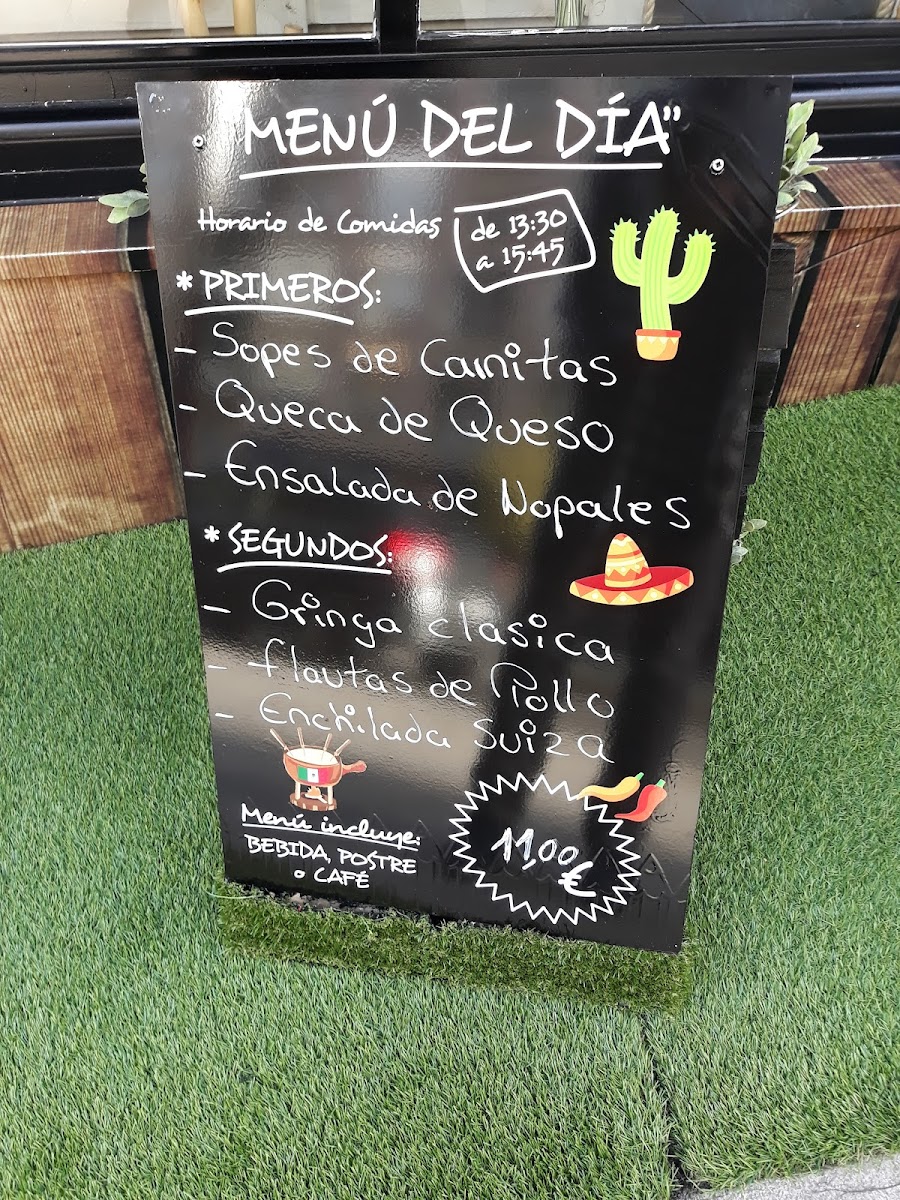 "MENÚ DEL DÍA"
Horario de Comidas de 13:30
a 15:45
* PRIMEROS:
- Sopes de Carnitas
- Queca de Queso
- Ensalada de Nopales
* SEGUNDOS:
- Gringa clasica
- flautas de Pollo
- Enchilada Suiza
Menú incluye:
BEBIDA, POSTRE
o CAFÉ
11,00 €